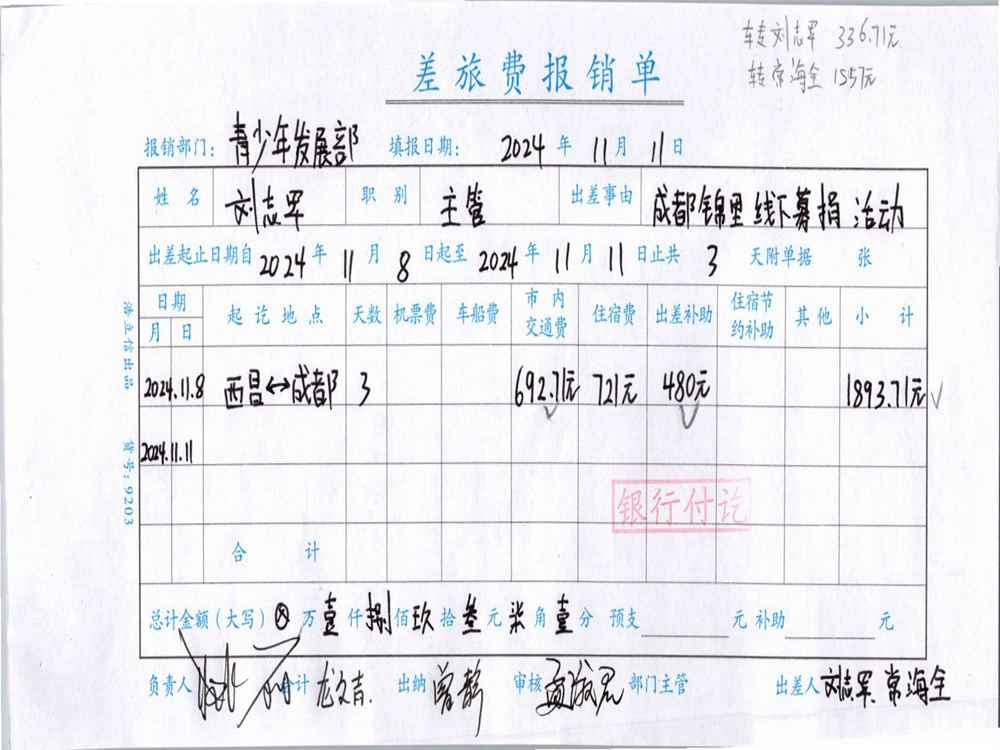 转刘志军 336.71元
转常海全 1557元
差旅费报销单
报销部门: 青少年发展部 填报日期: 2024 年 11 月 11 日
姓名 刘志军 职别 主管 出差事由 成都锦里线下募捐活动
出差起止日期自 2024 年 11 月 8 日起至 2024 年 11 月 11 日止共 3 天附单据 张
日期 起讫地点 天数 机票费 车船费 市内交通费 住宿费 出差补助 住宿节约补助 其他 小计
月 日
2024.11.8 西昌↔成都 3 692.71元 721元 480元 1893.71元
2024.11.11
银行付讫
合计
总计金额(大写) ⊗ 万 壹 仟 捌 佰 玖 拾 叁 元 柒 角 壹 分 预支 元 补助 元
负责人 会计 龙文青 出纳 曾静 审核 部门主管 出差人 刘志军、常海全
浩立信出品 货号:9203